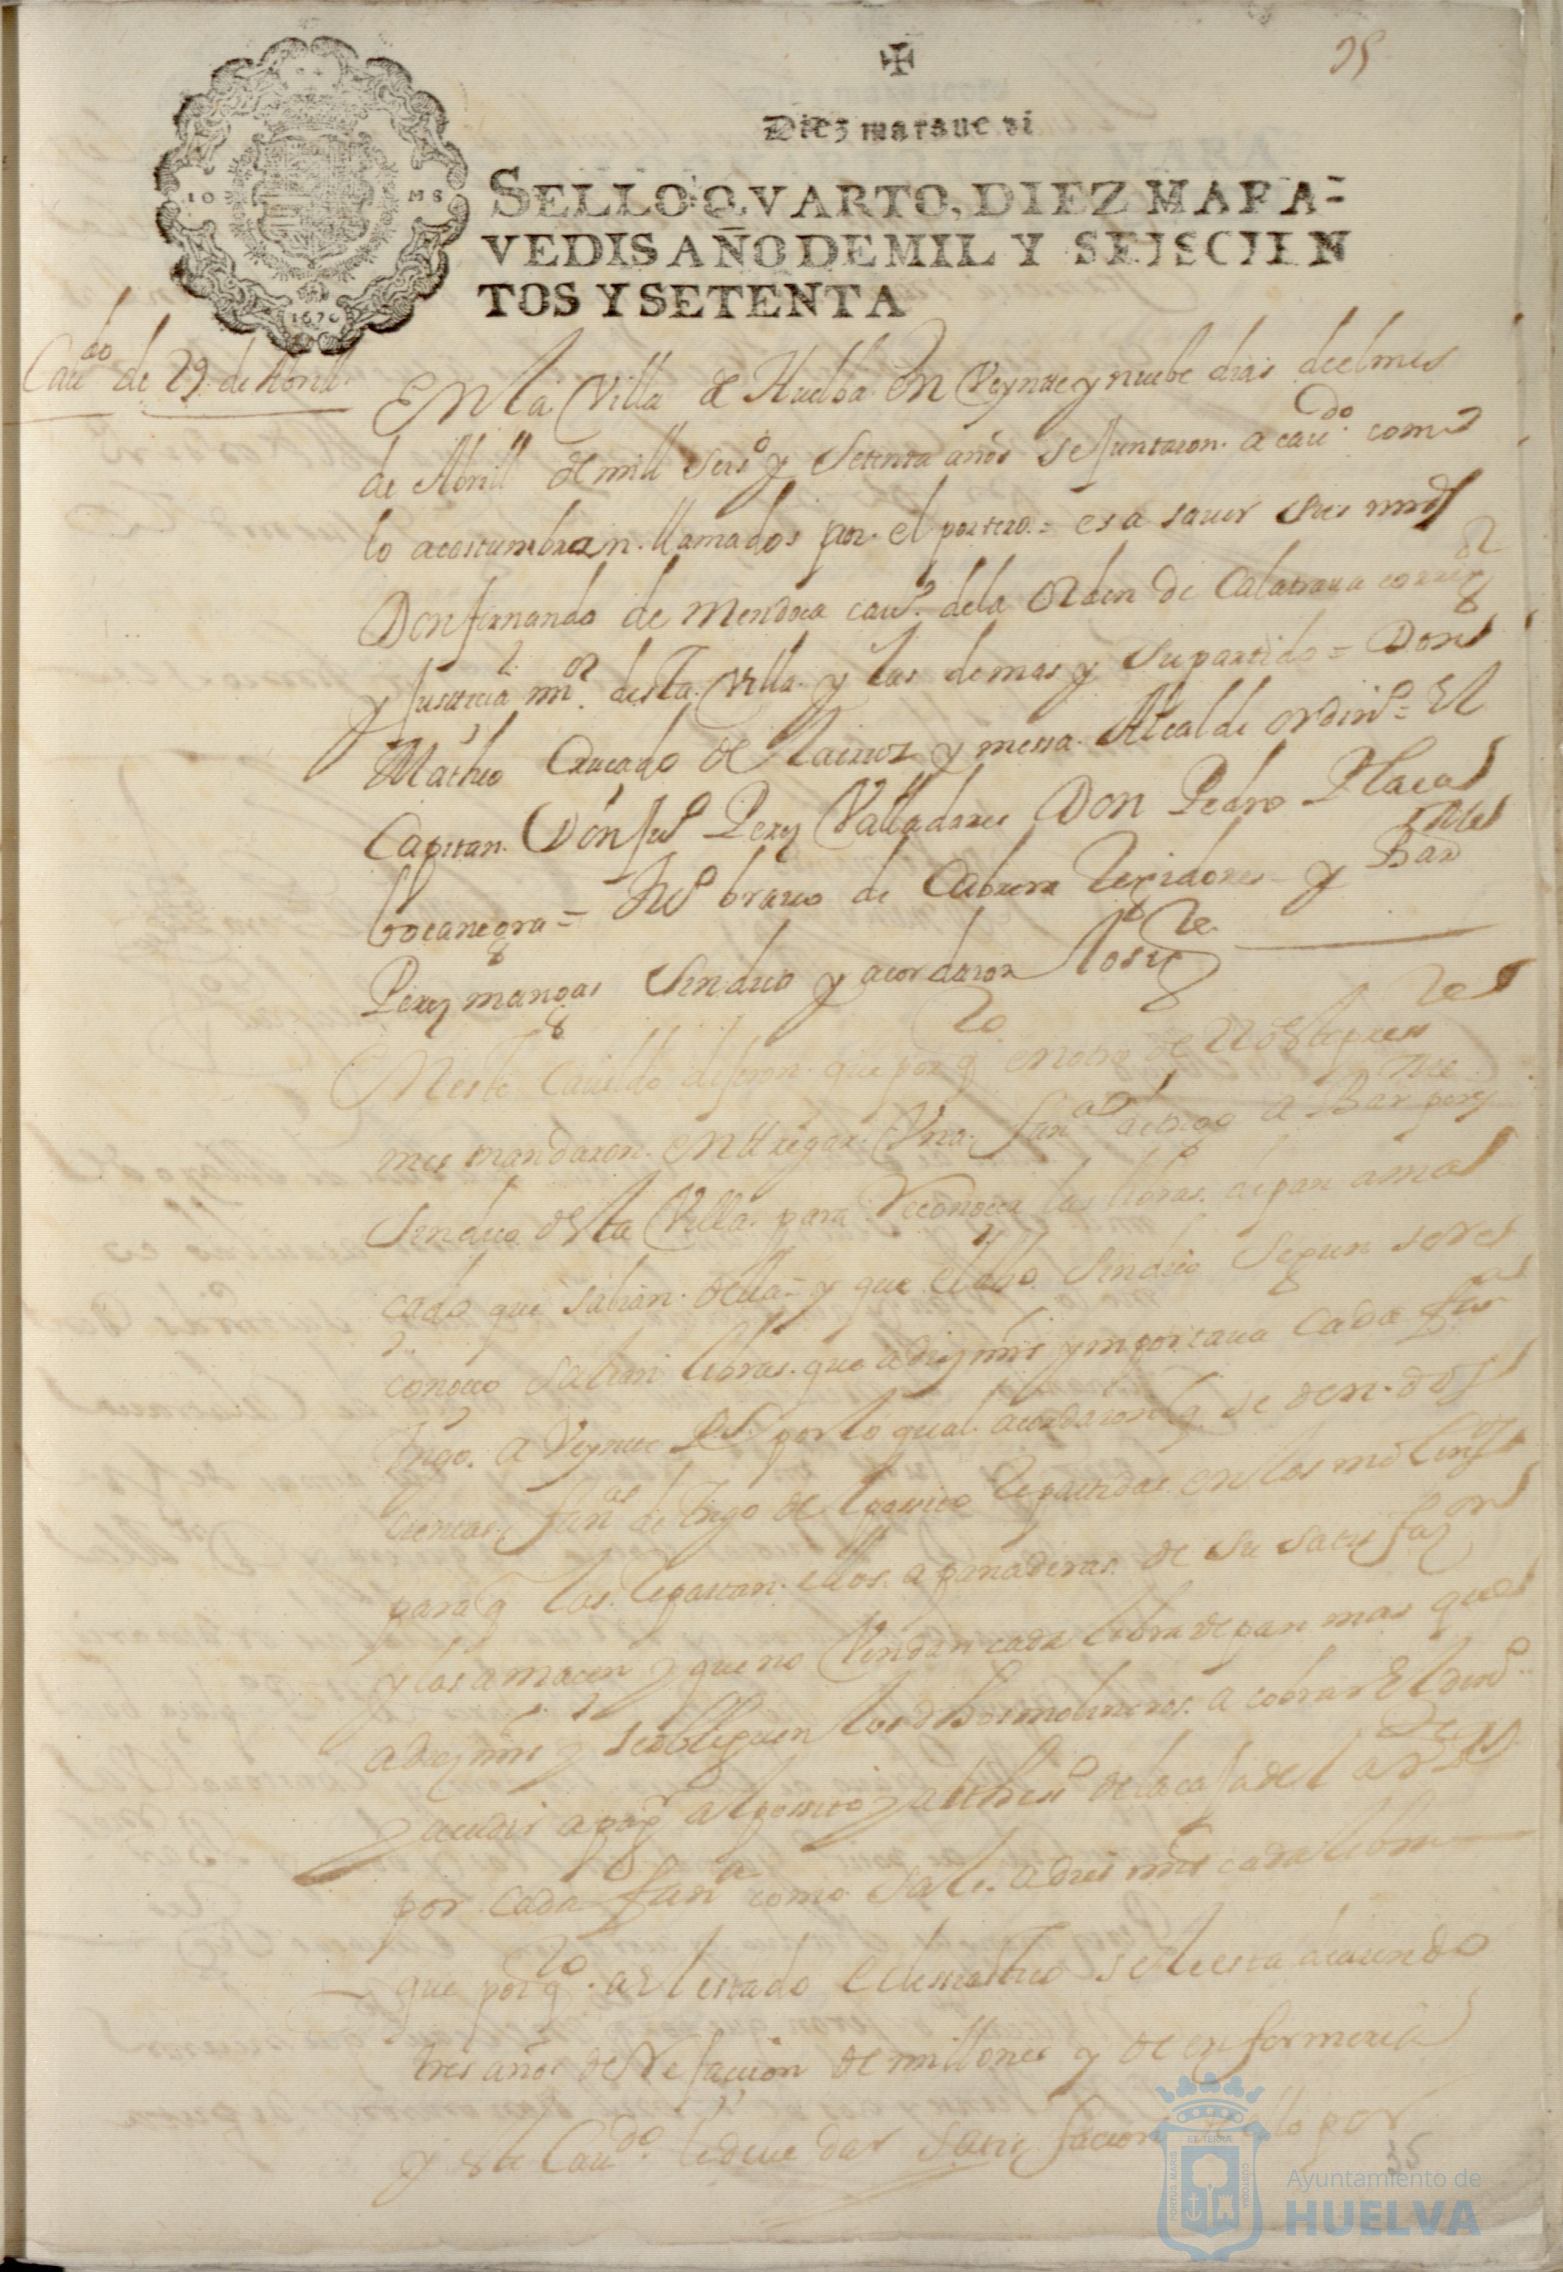 35
Diez marauedi
SELLO QVARTO, DIEZ MARA-
VEDIS AÑO DE MIL Y SEISCIEN
TOS Y SETENTA
1670
Cauᵈᵒ de 29 de Abrill
En la Villa de Huelba en Veynte y nuebe dias deel mes
de Abrill de mill seisᵒ y setenta años se juntaron a cauᵈᵒ como
lo acostumbran llamados por el portero = es a sauer sus mrds
Don fernando de Mendoca cauᵒ de la orden de Calatraua corregᵒʳ
y Justicia mʳ desta Villa y las demas y su partido = Don
Matheo Cruçado de y messa Alcalde ordinᵒ = El
Capitan Don Juᵒ Perez Valladares Don Pedro Placas
bocanegra = brauo de Cabrera Regidores y Barᵐᵉ
Perez mangas sindico y acordaron lo sigᵗᵉ
En este Cauildo dijeron que por qᵗᵒ en otro de este presᵗᵉ
mes mandaron entregar Vna fanᵃ de trigo a Barᵐᵉ perez
sindico desta Villa para Reconocer las libras de pan amas
cado que salian della = y que el dho sindico segun se Re
conocio salian libras que a diez mrs ymportaua cada fanᵃ
trigo a Veynte Rˢ por lo qual acordaron q se den dos
cientas fanᵃˢ de trigo de el possito Repartidas en los molinᵒˢ
para q las Repartan ellos a panaderas de su satisfazᵒⁿ
y las amacen y que no Vendan cada libra de pan mas que
a diez mrs y se obliguen los dhos molineros a cobrar el dinᵒ
y acudir a pagʳ al possito y al thesᵒ de la caja del
por cada fanᵃ como sale a dies mrs cada libra
que por qᵗᵒ a el estado eclesiastico se le esta deuiendo
tres años de Refaccion de millones y de enfermeria
y este Cauᵈᵒ le deue dar satisfacion dello por
35
Ayuntamiento de
HUELVA